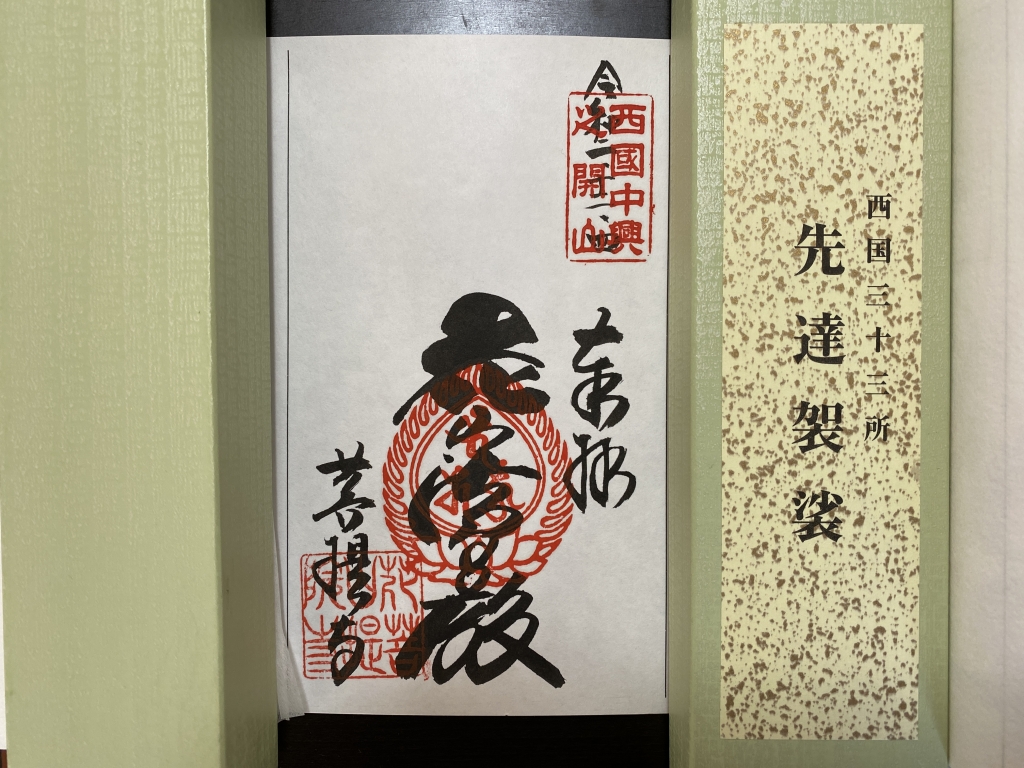 西国三十三所
先達袈裟
令和二
西國中興
之開山
奉拝
花山法皇殿
菩提寺